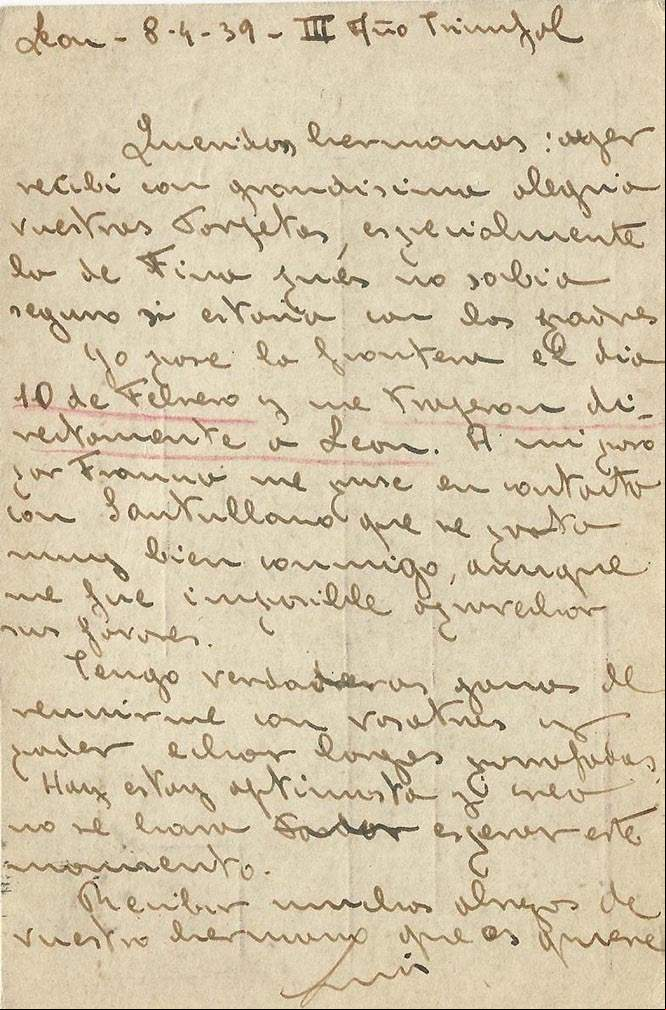 Leon - 8-4-39 - III Año Triunfal
Queridos hermanos: ayer
recibi con grandisima alegria
vuestras Tarjetas, especialmente
la de Fina pués no sabia
seguro si estaria con los padres
Yo pase la frontera el dia
10 de Febrero y me trajeron di-
rectamente a Leon. A mi paso
por Francia me puse en contacto
con Santullano que se porto
muy bien conmigo, aunque
me fue imposible aprovechar
sus favores.
Tengo verdaderas ganas de
reunirme con vosotros y
poder echar largas parrafadas.
Hoy estoy optimista y creo
no se hara esperar este
momento.
Recibir muchos abrazos de
vuestro hermano que os quiere
Luis